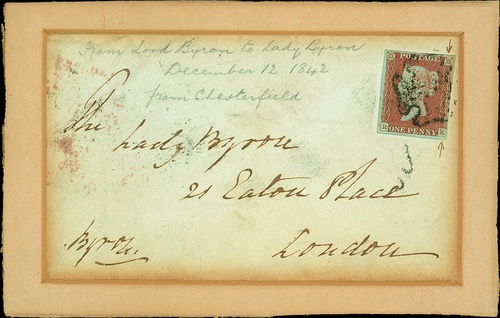 From Lord Byron to Lady Byron
December 12 1842
from Chesterfield
POSTAGE
ONE PENNY
The Lady Byron
21 Eaton Place
London
Byron